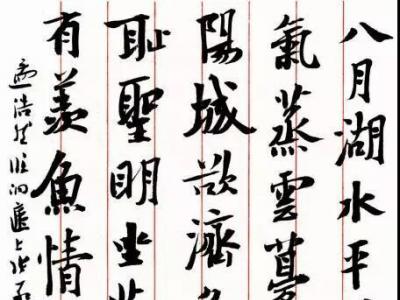 八月湖水平
氣蒸雲夢
陽城欲濟
恥聖明坐
有羨魚情
孟浩然臨洞庭上張